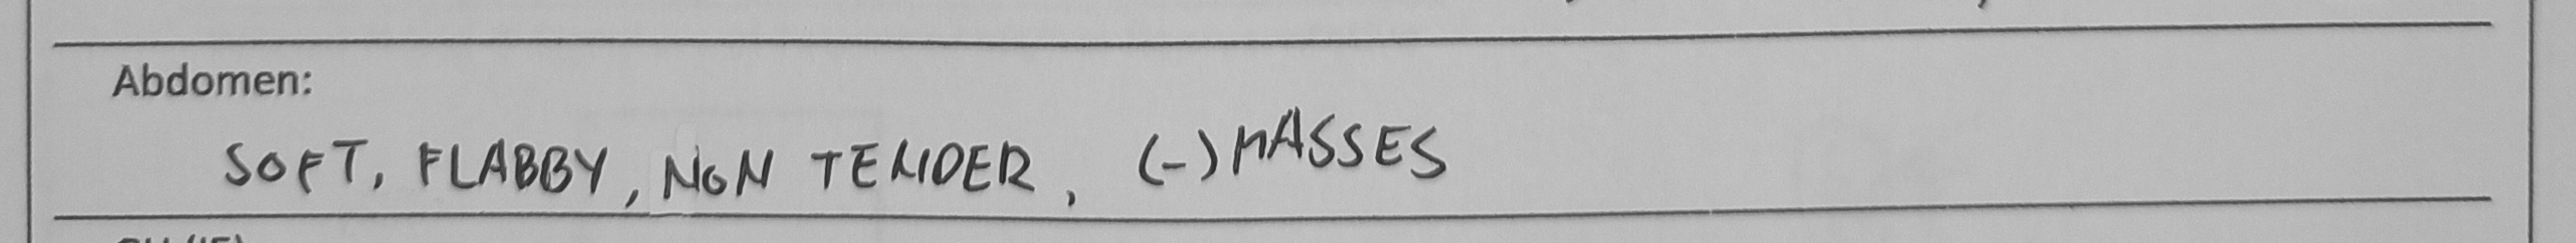 Abdomen:
SOFT, FLABBY, NON TENDER, (-) MASSES